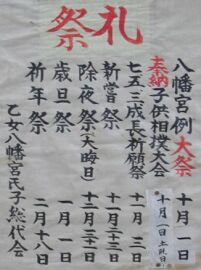 祭礼
八幡宮例大祭 十月一日
奉納子供相撲大会 十月一日
七五三成長祈願祭
新嘗祭 十一月二十三日
除夜祭(大晦日) 十二月三十一日
歳旦祭 一月一日
祈年祭 二月十八日
乙女八幡宮氏子総代会